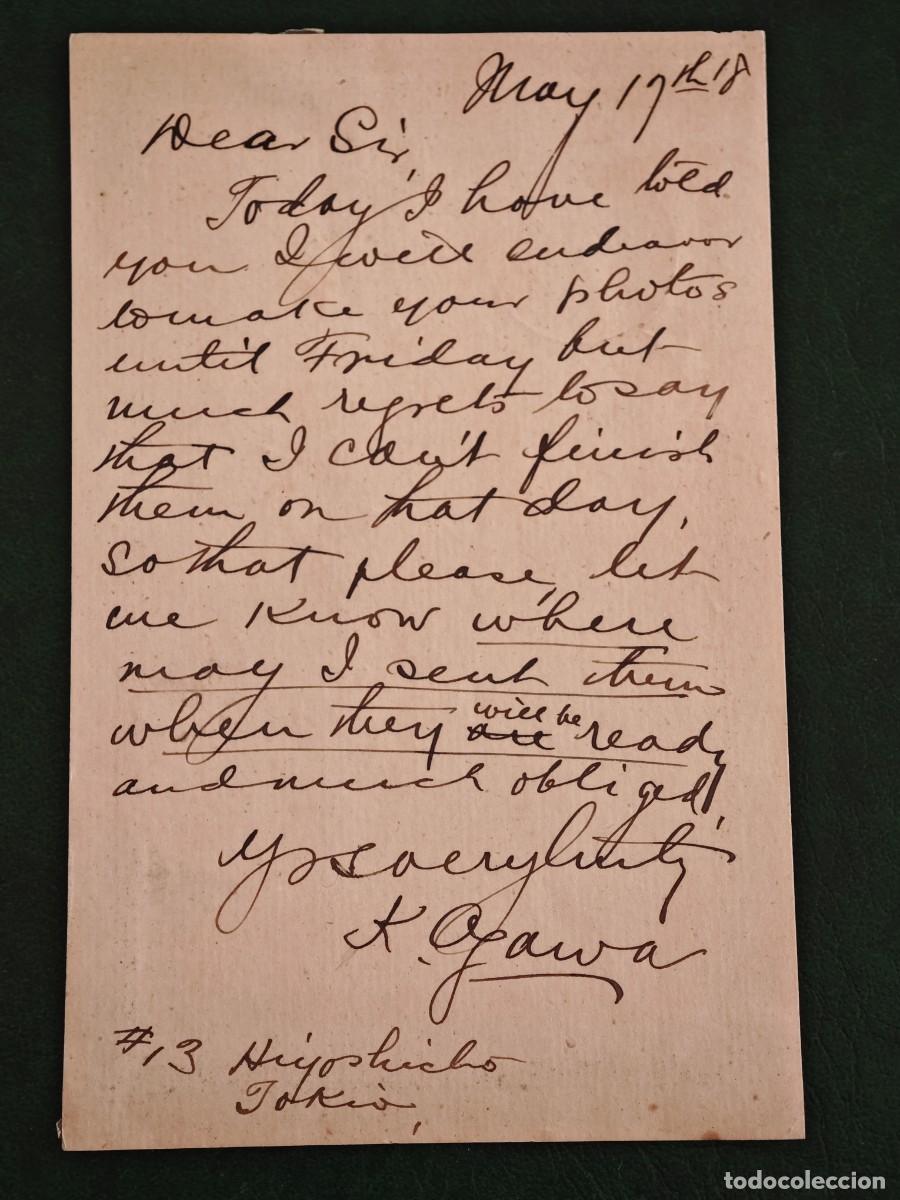 May 17th 18
Dear Sir,
Today I have told
you I will endeavor
to make your photos
until Friday but
much regrets to say
that I can't finish
them on that day,
so that please, let
me know where
may I sent them
when they will be ready
and much obliged,
Yrs very truly
K. Ogawa
#13 Hiyoshicho
Tokio,
todocoleccion